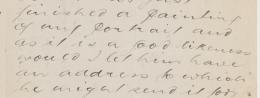 finished a painting
of my portrait and
as it is a good likeness
would I let him have
an address to which
he might send it for